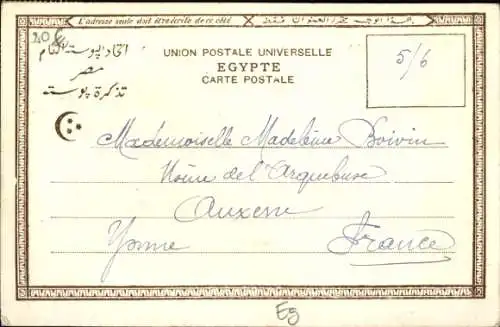 L'adresse seule doit être écrite de ce côté
هذا الوجه مخصص للعنوان فقط
20
اتحاد پوستة العام
مصر
تذكرة پوستة
UNION POSTALE UNIVERSELLE
EGYPTE
CARTE POSTALE
5/6
Mademoiselle Madeleine Boivin
de l'Arquebuse
Auxerre
Yonne France
Eg